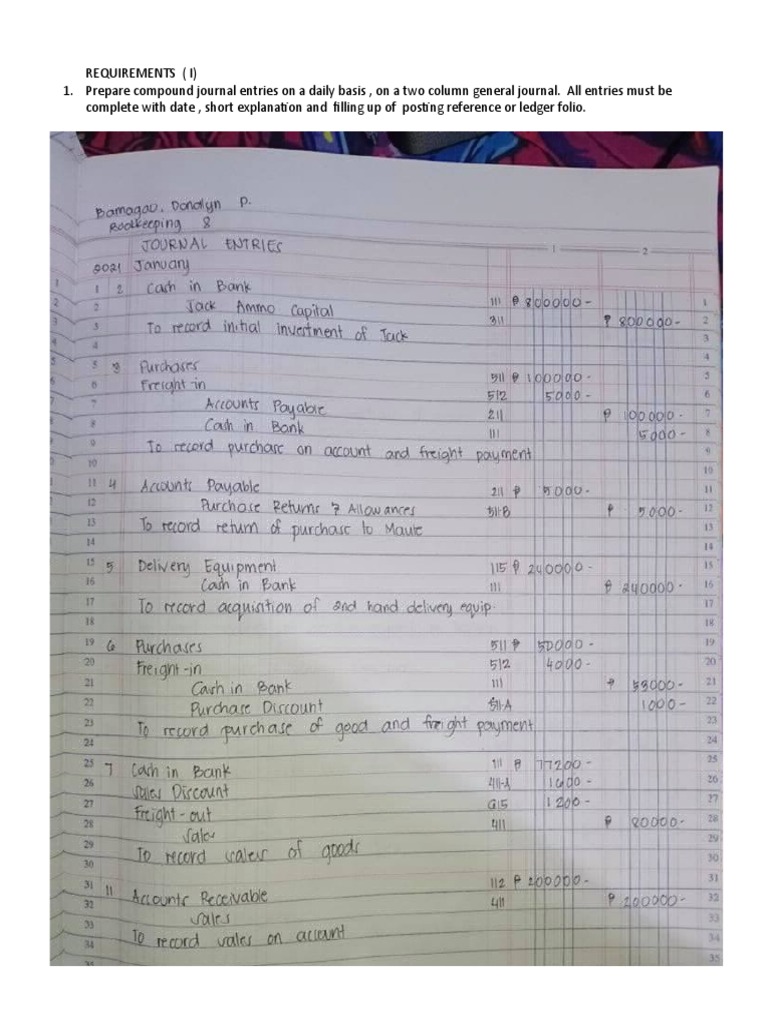 REQUIREMENTS ( I)
1. Prepare compound journal entries on a daily basis , on a two column general journal. All entries must be
complete with date , short explanation and filling up of posting reference or ledger folio.
Bamogao, Donalyn P.
Bookkeeping 8
JOURNAL ENTRIES 1 2
2021 January
1 2 Cash in Bank 111 ₱ 800000- 1
2 Jack Ammo Capital 311 ₱ 800000- 2
3 To record initial investment of Jack 3
4 4
5 3 Purchases 511 ₱ 100000- 5
6 Freight-in 512 5000- 6
7 Accounts Payable 211 ₱ 100000- 7
8 Cash in Bank 111 5000- 8
9 To record purchase on account and freight payment 9
10 10
11 4 Accounts Payable 211 ₱ 5000- 11
12 Purchase Returns & Allowances 511-B ₱ 5000- 12
13 To record return of purchase to Maute 13
14 14
15 5 Delivery Equipment 115 ₱ 240000- 15
16 Cash in Bank 111 ₱ 240000- 16
17 To record acquisition of 2nd hand delivery equip. 17
18 18
19 6 Purchases 511 ₱ 50000- 19
20 Freight-in 512 4000- 20
21 Cash in Bank 111 ₱ 53000- 21
22 Purchase Discount 511-A 1000- 22
23 To record purchase of good and freight payment 23
24 24
25 7 Cash in Bank 111 ₱ 77200- 25
26 Sales Discount 411-A 1600- 26
27 Freight-out 615 1200- 27
28 Sales 411 ₱ 80000- 28
29 To record sales of goods 29
30 30
31 11 Accounts Receivable 112 ₱ 200000- 31
32 Sales 411 ₱ 200000- 32
33 To record sales on account 33
34 34
35 35